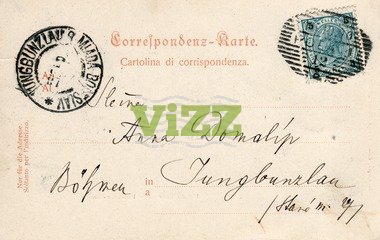 JUNGBUNZLAU MLADA BOLESLAV
Correspondenz-Karte.
Cartolina di corrispondenza.
ViZZ
Anna Domalip
in
Böhmen
a
Jungbunzlau
Nur für die Adresse.
Soltanto per l'indirizzo.